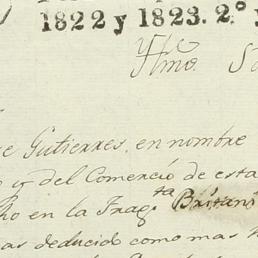 1822 y 1823. 2.º
Ylmo. S
e Gutierres, en nombre
y del Comercio de esta
ho en la Frag.ta Britani
as deducido como mas